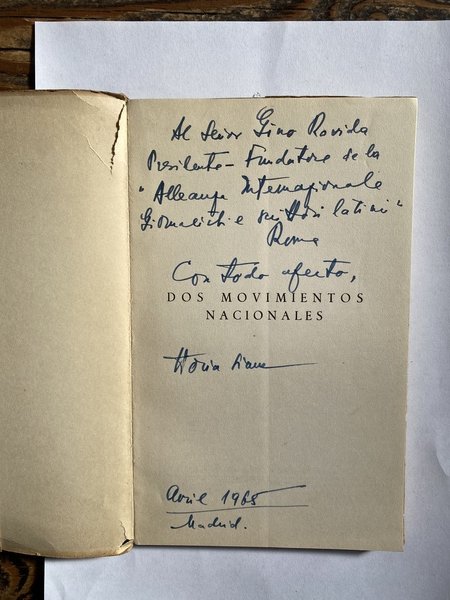 Al Señor Gino Rovida
Presidente - Fundatore de la
"Alleanza Internazionale
Giornalisti e scrittori latini"
Roma
Con todo afecto,
DOS MOVIMIENTOS
NACIONALES
Horia
Avril 1965
Madrid.